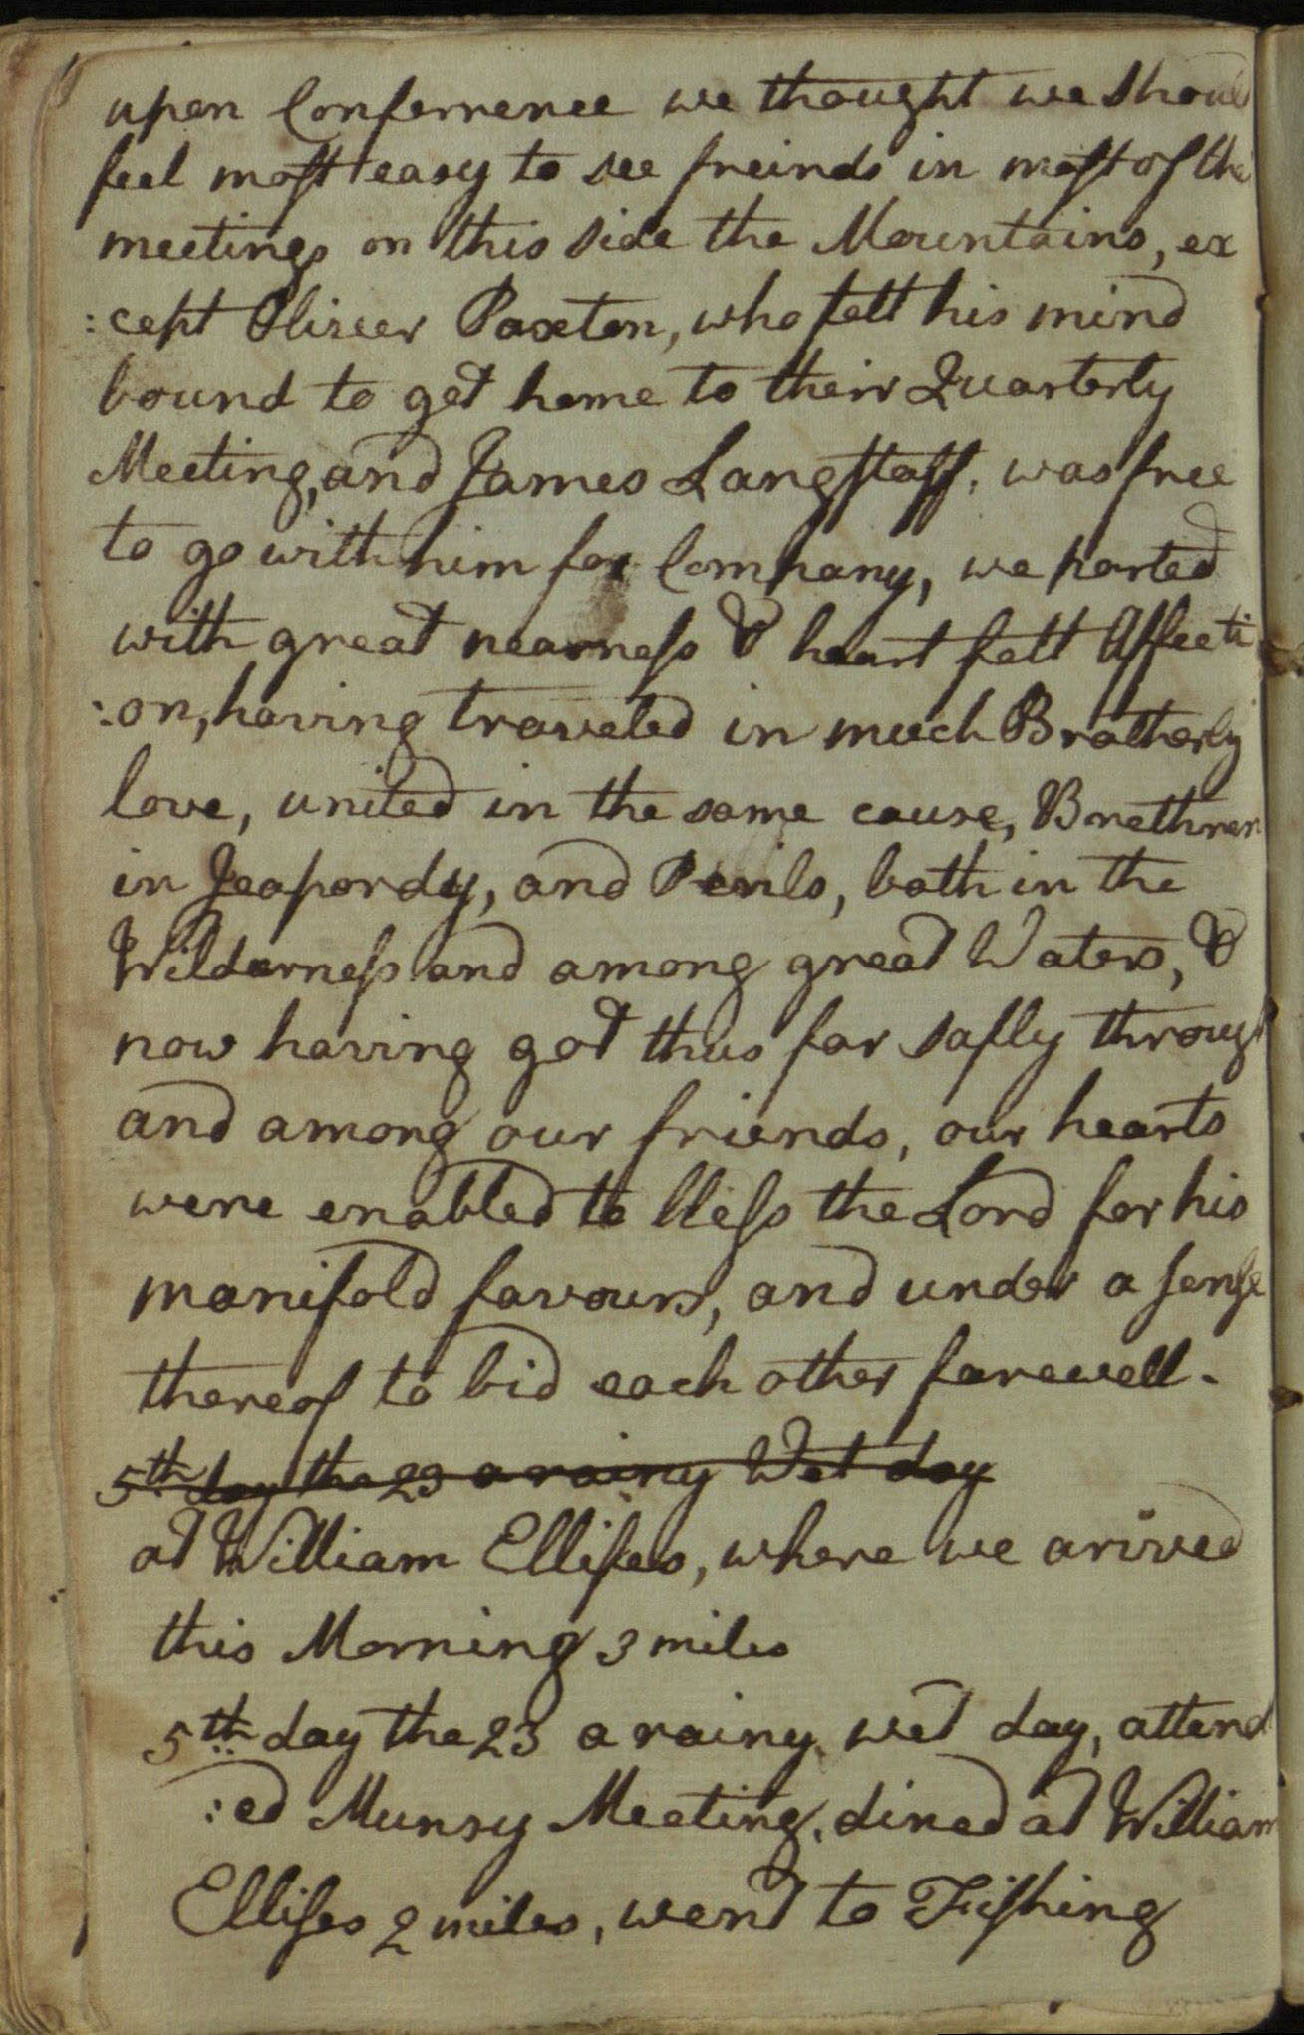 upon Conferrence we thought we should
feel most easy to see freinds in most of the
meetings on this side the Mountains, ex
:cept Oliver Paxton, who felt his mind
bound to get home to their Quarterly
Meeting, and James Langstaff, was free
to go with him for Company, we parted
with great nearness & heart felt Affecti
:on, having traveled in much Brotherly
love, united in the same cause, Brethren
in Jeapordy, and Perils, both in the
Wilderness and among great Waters, &
now having got thus far safly through
and among our friends, our hearts
were enabled to bless the Lord for his
manifold favours, and under a sense
thereof to bid each other farewell.
5th day the 23 a rainy Wet day
at William Ellises, where we arived
this Morning 3 miles
5th day the 23 a rainy wet day, attend
:ed Munsy Meeting, dined at William
Ellises 2 miles, went to Fishing